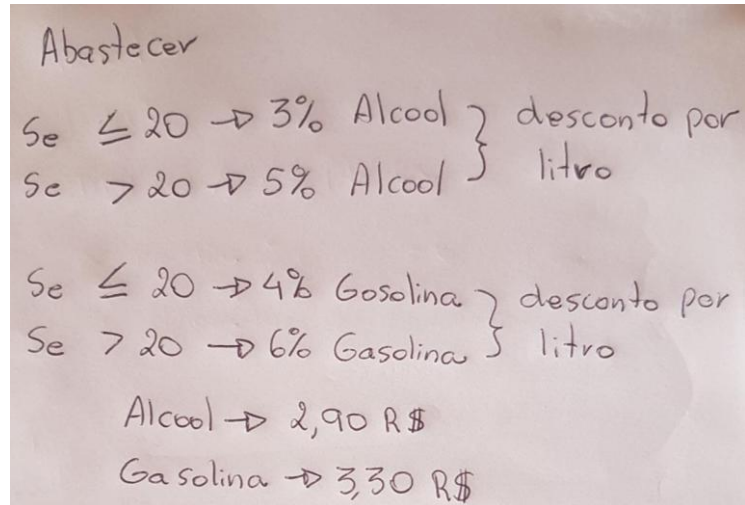 Abastecer
Se ≤ 20 → 3% Alcool } desconto por
Se > 20 → 5% Alcool } litro
Se ≤ 20 → 4% Gosolina } desconto por
Se > 20 → 6% Gasolina } litro
Alcool → 2,90 R$
Gasolina → 3,30 R$